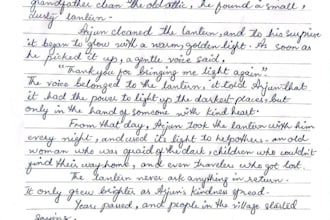 grandfather clean the old attic, he found a small,
dusty lantern.
Arjun cleaned the lantern, and to his surprise
it began to glow with a warm, golden light. As soon as
he picked it up, a gentle voice said,
"Thank you for bringing me light again."
The voice belonged to the lantern, it told Arjun that
it had the power to light up the darkest places, but
only in the hand of someone with kind heart.
From that day, Arjun took the lantern with him
every night, and used its light to help others - an old
woman who was afraid of the dark, children who couldn't
find their way home, and even travelers who got lost.
The lantern never ask anything in return.
It only grew brighter as Arjun's kindness spread.
Years passed, and people in the village started